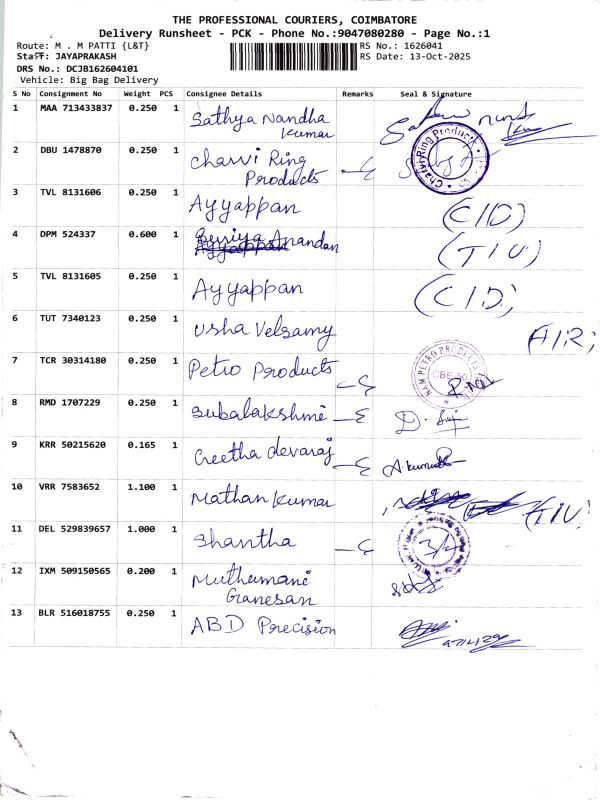 THE PROFESSIONAL COURIERS, COIMBATORE
Delivery Runsheet - PCK - Phone No.:9047080280 - Page No.:1
Route: M . M PATTI {L&T} RS No.: 1626041
Staff: JAYAPRAKASH RS Date: 13-Oct-2025
DRS No.: DCJB162604101
Vehicle: Big Bag Delivery
S No Consignment No Weight PCS Consignee Details Remarks Seal & Signature
1 MAA 713433837 0.250 1 Sathya Nandha
Kumar
2 DBU 1478870 0.250 1 Charvi Ring
Products
3 TVL 8131606 0.250 1 Ayyappan (CID)
4 DPM 524337 0.600 1 Anandan (TIU)
5 TVL 8131605 0.250 1 Ayyappan (CID)
6 TUT 7340123 0.250 1 Usha Velsamy
7 TCR 30314180 0.250 1 Petro Products
8 RMD 1707229 0.250 1 Subalakshmi
9 KRR 50215620 0.165 1 Geetha devaraj
10 VRR 7583652 1.100 1 Mathan Kumar (TIU)
11 DEL 529839657 1.000 1 Shantha
12 IXM 509150565 0.200 1 Muthumani
Ganesan
13 BLR 516018755 0.250 1 ABD Precision